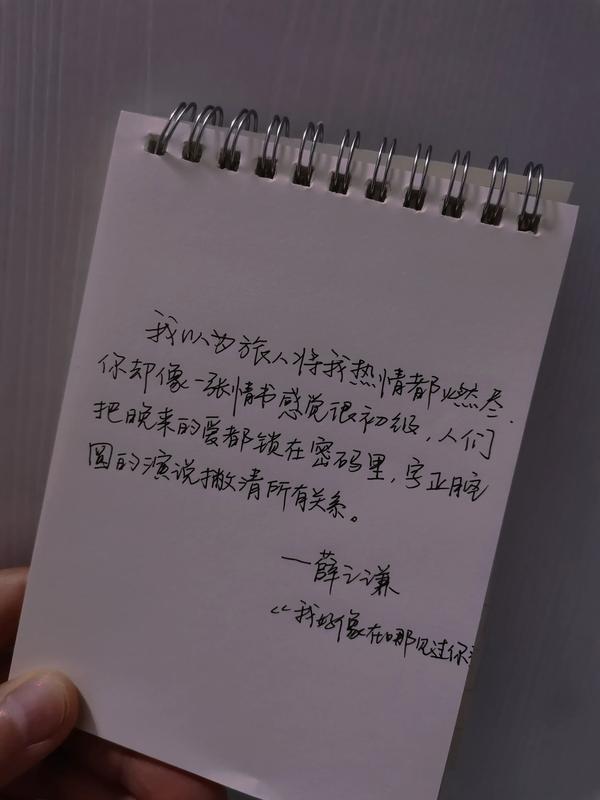 我以为旅人将我热情都燃尽.
你却像一张情书感觉很初级,人们
把晚来的爱都锁在密码里,字正腔
圆的演说撇清所有关系。
—薛之谦
《我好像在哪见过你